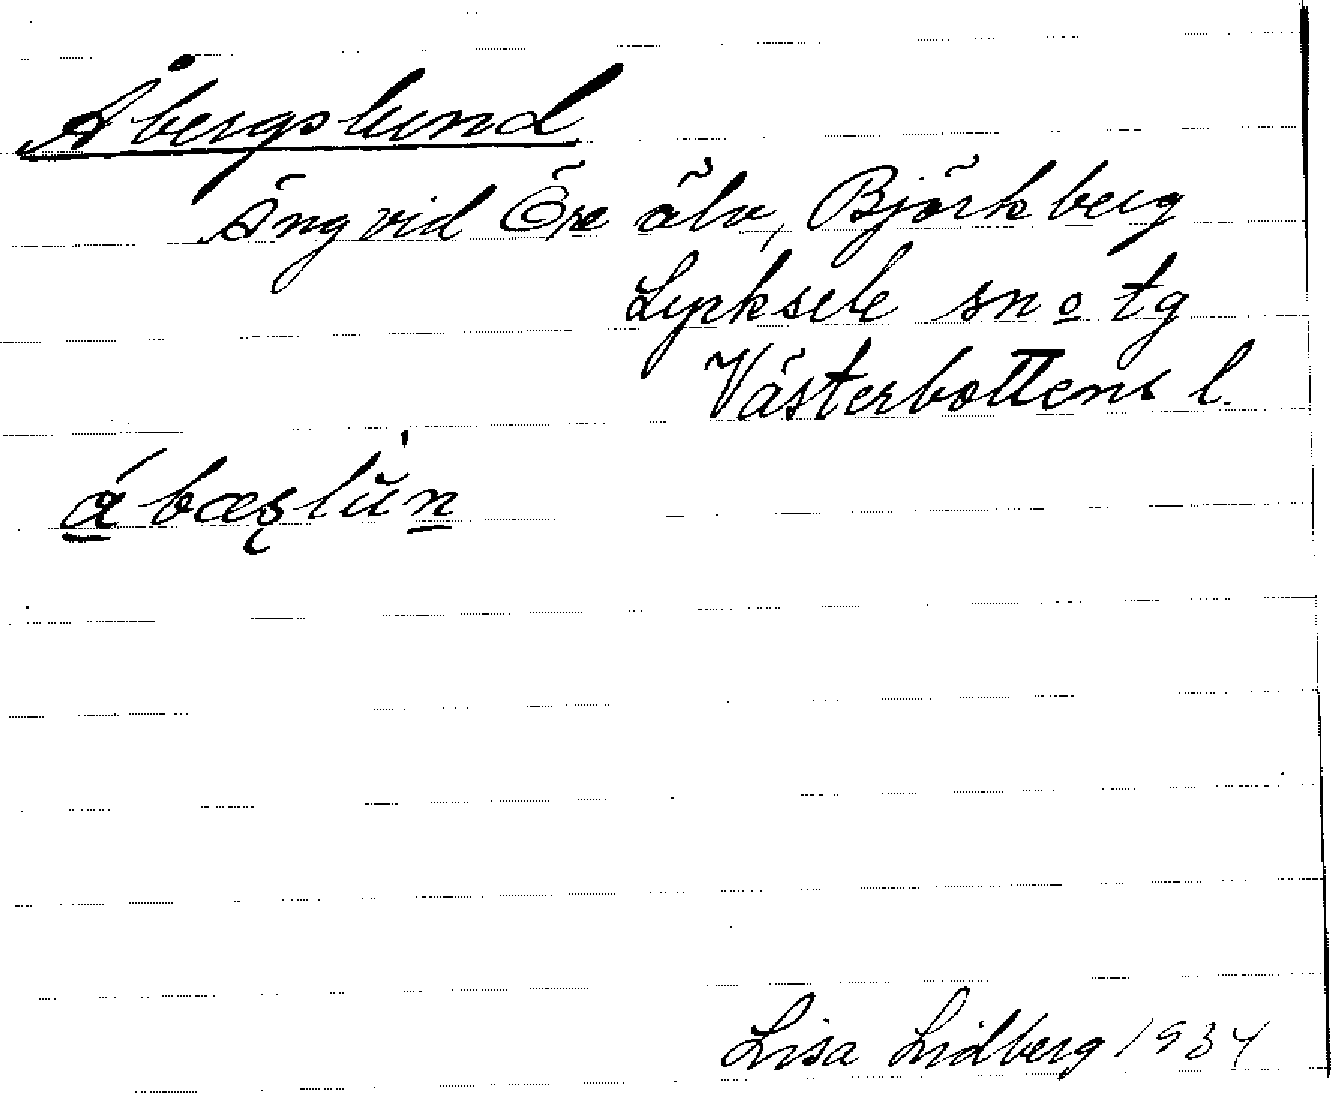 Åbergslund
Äng vid Öre älv, Björkberg
Lycksele sn o tg
Västerbottens l.
Lisa Lidberg 1934